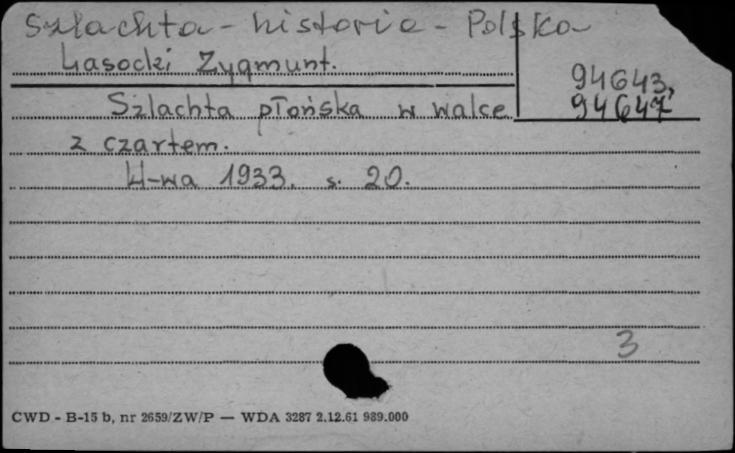 Szlachta - historia - Polska
Lasocki Zygmunt.
94643,
94647
Szlachta płońska w walce
z czartem.
W-wa 1933. s. 20.
3
CWD - B-15 b, nr 2659/ZW/P — WDA 3287 2.12.61 989.000